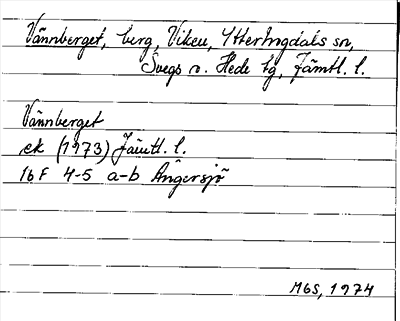 Vännberget, berg, Viken, Ytterhogdals sn,
Svegs o. Hede tg, Jämtl. l.
Vännberget
ek (1973) Jämtl. l.
16F 4-5 a-b Ängersjö
MGS, 1974